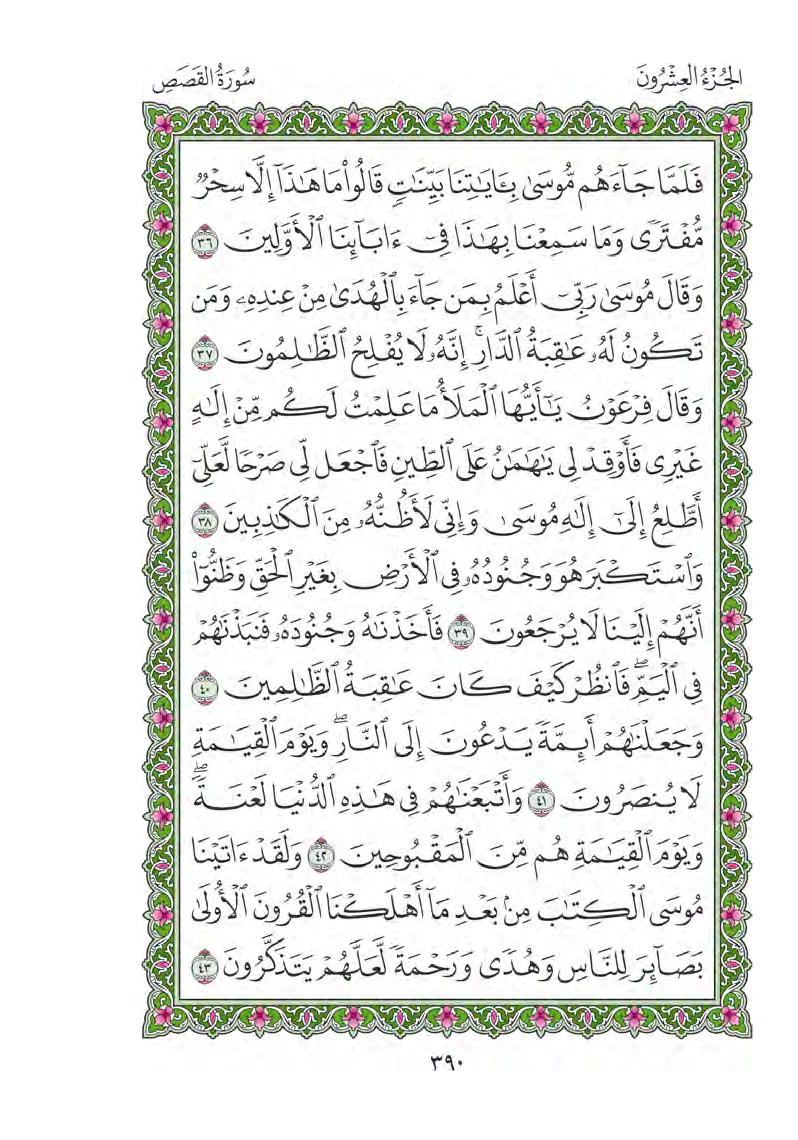 الجُزْءُ العِشْرُونَ
سُورَةُ القَصَصِ
فَلَمَّا جَآءَهُم مُّوسَىٰ بِـَٔايَٰتِنَا بَيِّنَٰتٖ قَالُواْ مَا هَٰذَآ إِلَّا سِحْرٞ
مُّفْتَرٗى وَمَا سَمِعْنَا بِهَٰذَا فِيٓ ءَابَآئِنَا ٱلْأَوَّلِينَ ٣٦
وَقَالَ مُوسَىٰ رَبِّيٓ أَعْلَمُ بِمَن جَآءَ بِٱلْهُدَىٰ مِنْ عِندِهِۦ وَمَن
تَكُونُ لَهُۥ عَٰقِبَةُ ٱلدَّارِۚ إِنَّهُۥ لَا يُفْلِحُ ٱلظَّٰلِمُونَ ٣٧
وَقَالَ فِرْعَوْنُ يَٰٓأَيُّهَا ٱلْمَلَأُ مَا عَلِمْتُ لَكُم مِّنْ إِلَٰهٍ
غَيْرِي فَأَوْقِدْ لِي يَٰهَٰمَٰنُ عَلَى ٱلطِّينِ فَٱجْعَل لِّي صَرْحٗا لَّعَلِّيٓ
أَطَّلِعُ إِلَىٰٓ إِلَٰهِ مُوسَىٰ وَإِنِّي لَأَظُنُّهُۥ مِنَ ٱلْكَٰذِبِينَ ٣٨
وَٱسْتَكْبَرَ هُوَ وَجُنُودُهُۥ فِي ٱلْأَرْضِ بِغَيْرِ ٱلْحَقِّ وَظَنُّوٓاْ
أَنَّهُمْ إِلَيْنَا لَا يُرْجَعُونَ ٣٩ فَأَخَذْنَٰهُ وَجُنُودَهُۥ فَنَبَذْنَٰهُمْ
فِي ٱلْيَمِّۖ فَٱنظُرْ كَيْفَ كَانَ عَٰقِبَةُ ٱلظَّٰلِمِينَ ٤٠
وَجَعَلْنَٰهُمْ أَئِمَّةٗ يَدْعُونَ إِلَى ٱلنَّارِۖ وَيَوْمَ ٱلْقِيَٰمَةِ
لَا يُنصَرُونَ ٤١ وَأَتْبَعْنَٰهُمْ فِي هَٰذِهِ ٱلدُّنْيَا لَعْنَةٗۖ
وَيَوْمَ ٱلْقِيَٰمَةِ هُم مِّنَ ٱلْمَقْبُوحِينَ ٤٢ وَلَقَدْ ءَاتَيْنَا
مُوسَى ٱلْكِتَٰبَ مِنۢ بَعْدِ مَآ أَهْلَكْنَا ٱلْقُرُونَ ٱلْأُولَىٰ
بَصَآئِرَ لِلنَّاسِ وَهُدٗى وَرَحْمَةٗ لَّعَلَّهُمْ يَتَذَكَّرُونَ ٤٣
٣٩٠